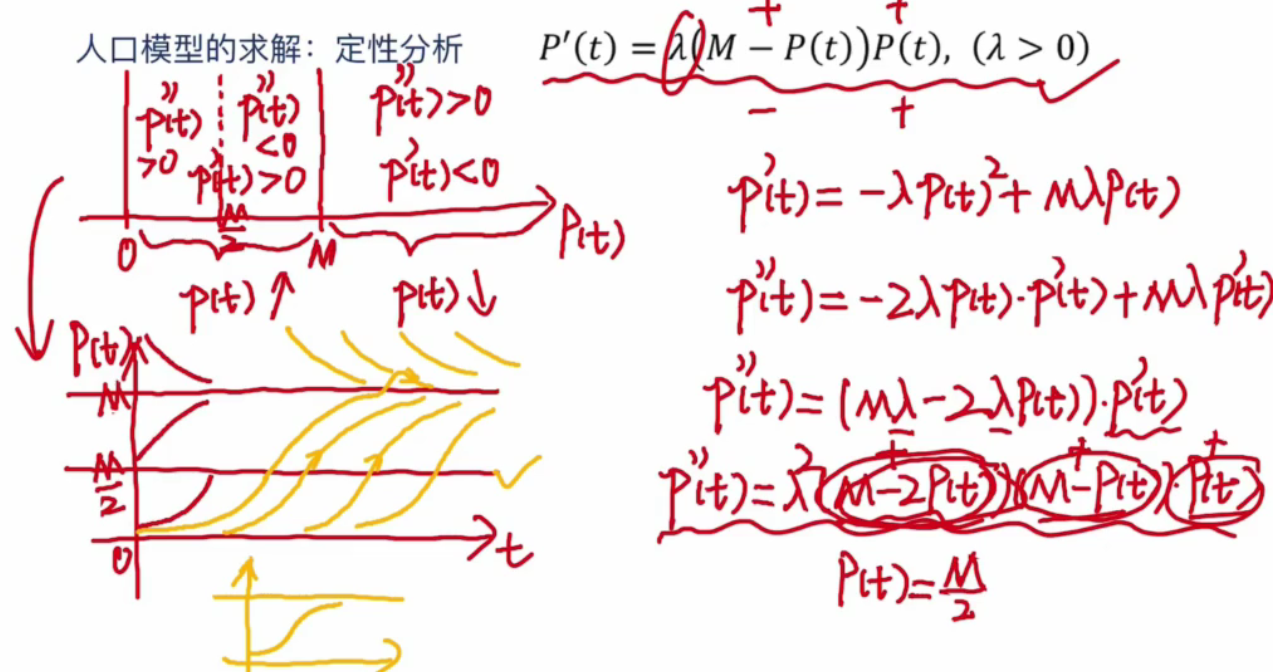 人口模型的求解：定性分析
P′(t) = λ(M − P(t))P(t), (λ > 0)
+ +
− +
P''(t) >0
P''(t) <0
P'(t)>0
P''(t)>0
P'(t)<0
0 M/2 M P(t)
P(t)↑ P(t)↓
P'(t)=-λP(t)²+MλP(t)
P''(t)=-2λP(t)·P'(t)+MλP'(t)
P''(t)=(Mλ-2λP(t))·P'(t)
+ + +
P''(t)=λ²(M-2P(t))(M-P(t))·P(t)
P(t)=M/2
P(t)
M
M/2
0 t